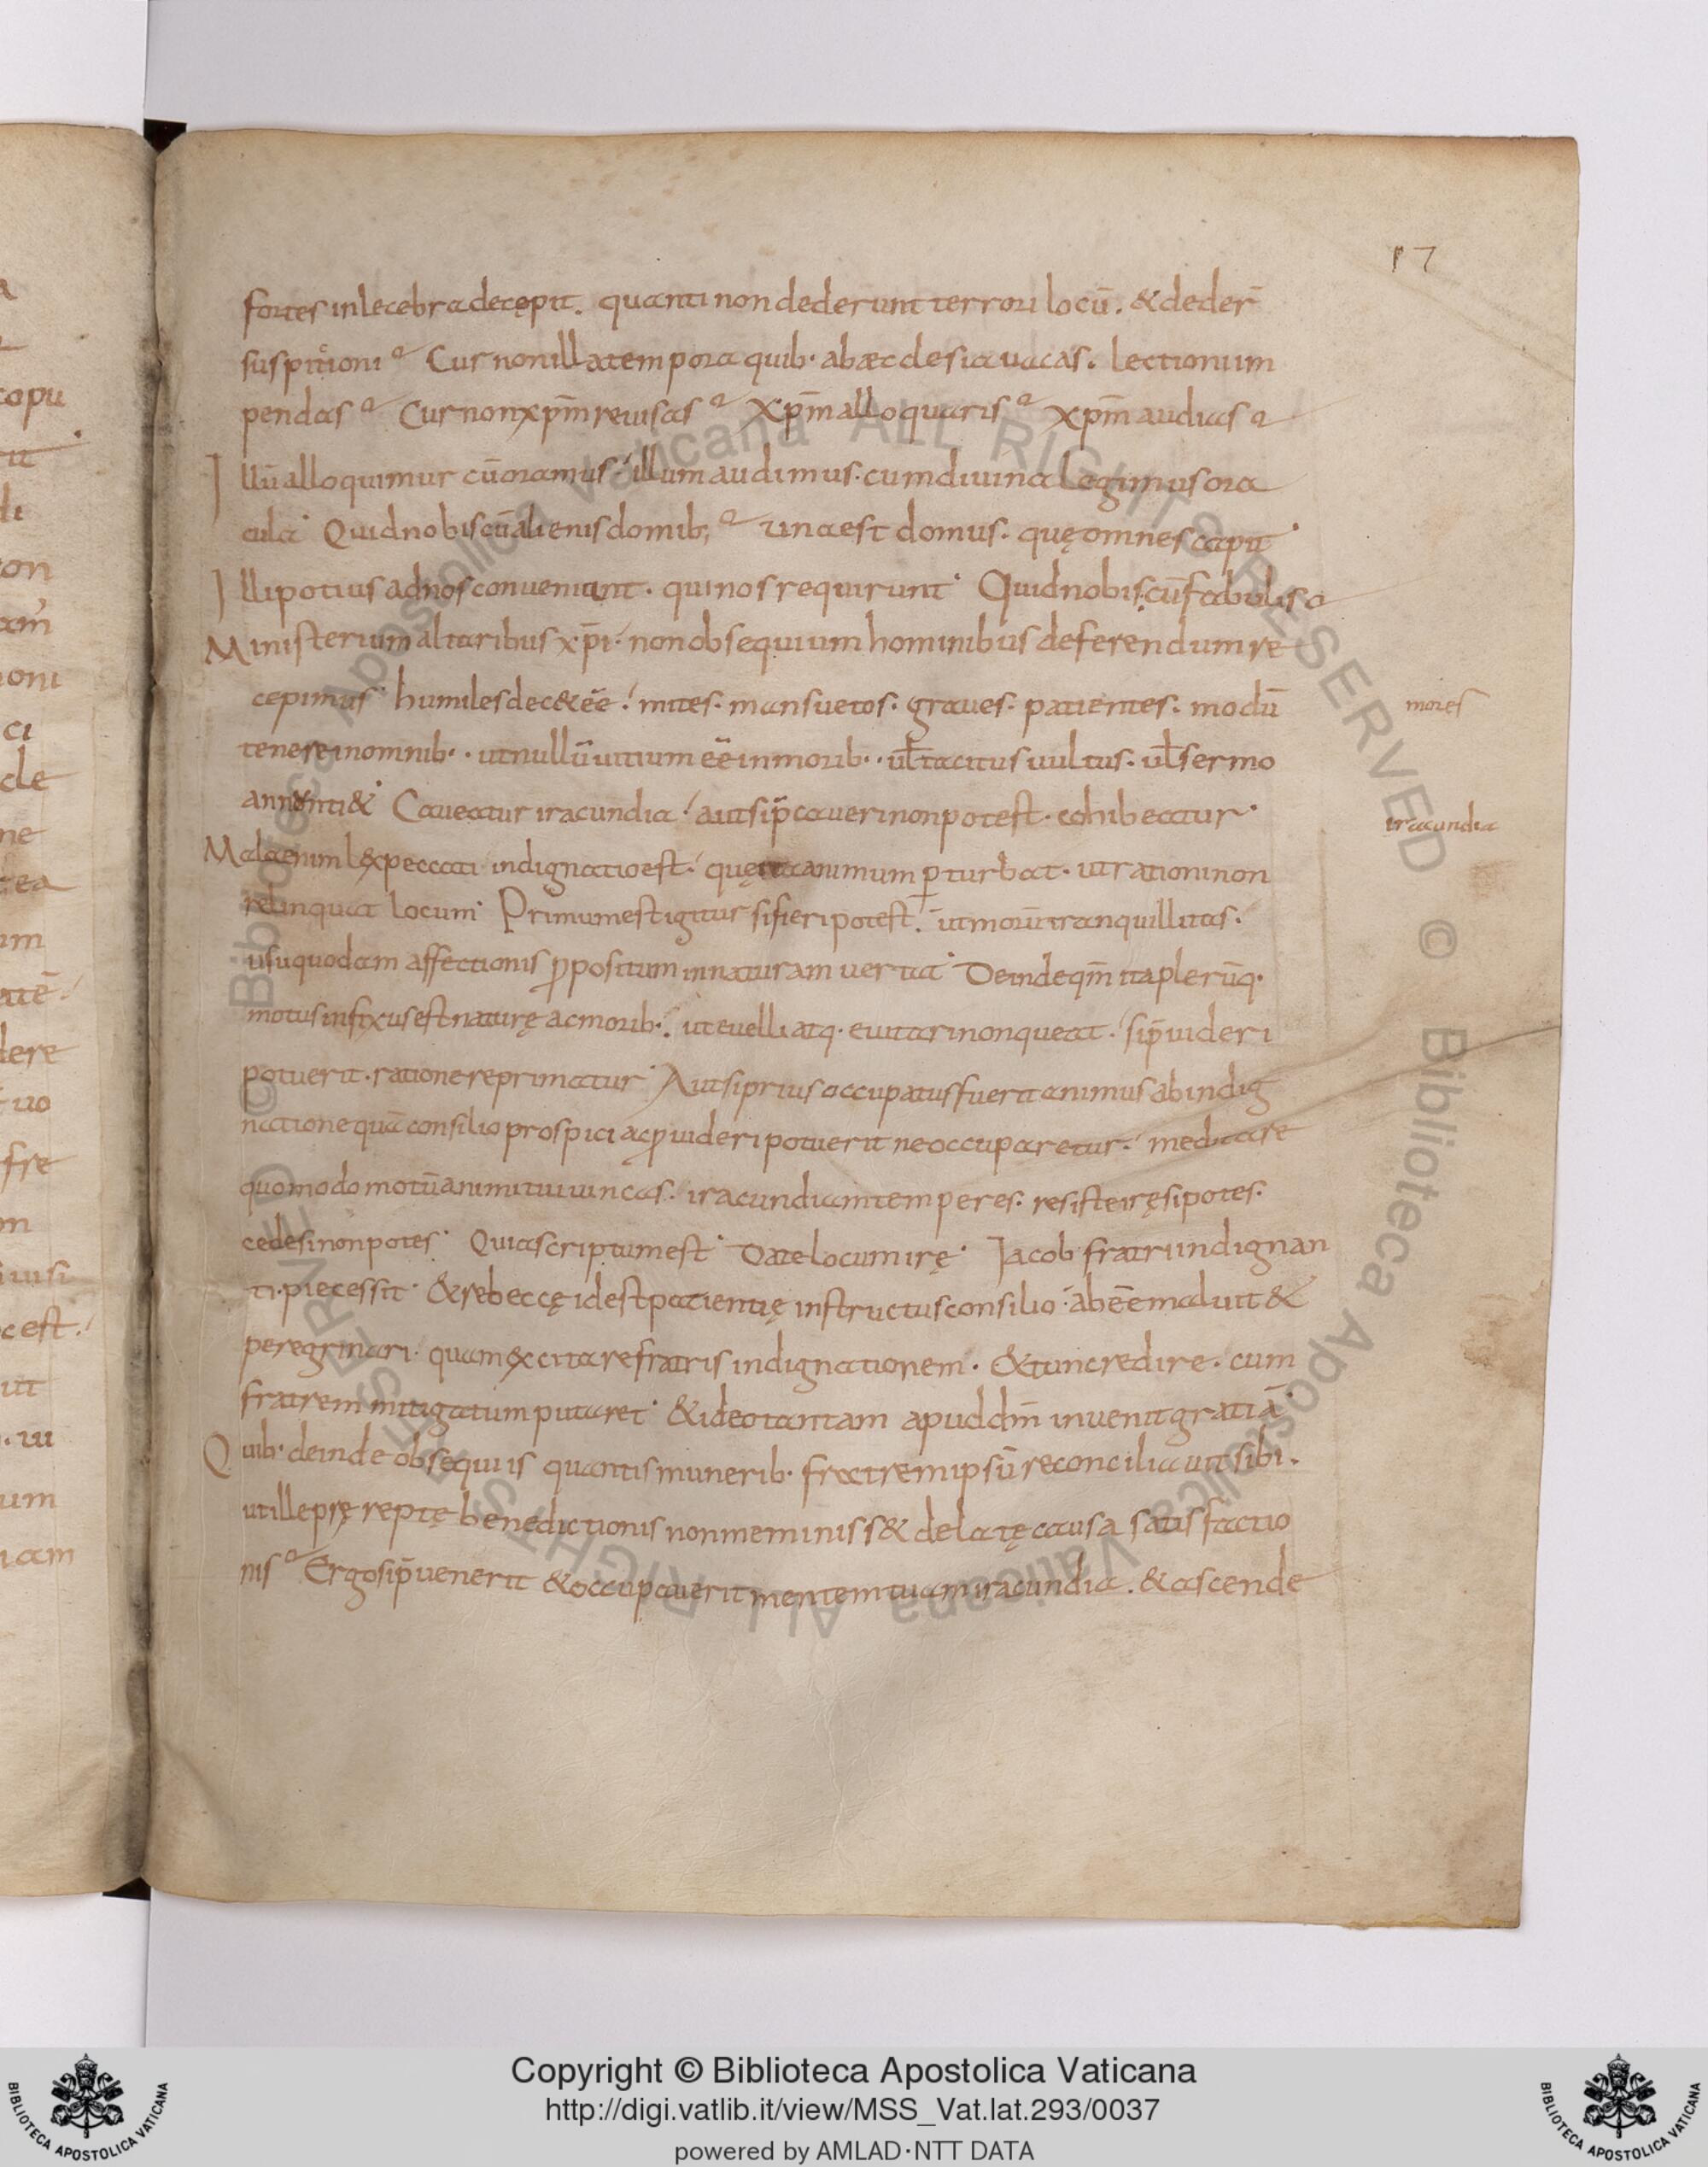 17
fortes inlecebra decępit. quanti non dederunt terrori locū. & deder̄
suspitioni? Cur non illa tempora quib· ab æcclesia uacas. lectionum
pendas? Cur non xp̄m reuisas? Xp̄m alloquaris? xp̄m audias?
Illū alloquimur cū oramus. illum audimus. cum diuina legimus ora
cula· Quid nobis cū alienis domib;? una est domus. quę omnes capit·
Illi potius ad nos conueniunt. qui nos requirunt· Quid nobis cū fabulis?
Ministerium altaribus xp̄i. non obsequium hominibus deferendum re
cepimus· humiles dec& ēe! mites. mansuetos. graues. patientes. modū
mores
tenere in omnib·. ut nullū uitium ēe in morib·. ut̄ tacitus uultus. ut̄ sermo
annunti&· Caueatur iracundia! aut si p̄caueri non potest. cohibeatur·
iracundia
Mala enim lex peccati indignatio est. quę ita animum ꝑturbat. ut rationi non
relinquat locum· Primum est igitur si fieri potest. ut morū tranquillitas.
usu quodam affectionis ꝓpositum in naturam uertat· Deinde qm̄ ita plerūq·
motus infixus est naturę ac morib·. ut euelli atq· euitari non queat. si p̄uideri
potuerit. ratione reprimatur· Aut si prius occupatus fuerit animus ab indig
natione quā consilio prospici ac ꝓuideri potuerit ne occuparetur. meditare
quomodo motū animi tui uincas. iracundiam temperes. resiste irę si potes.
cede si non potes· Quia scriptum est· Date locum irę· Jacob fratri indignan
ti. pie cessit· & rebeccę id est patientię instructus consilio· abēe maluit &
peregrinari quam excitare fratris indignationem. & tunc redire. cum
fratrem mitigatum putaret· & ideo tantam apud dm̄ inuenit gratiā·
Quib· deinde obsequiis quantis munerib· fratrem ipsū reconciliauit sibi.
ut ille pręreptę benedictionis non meminiss& delatę causa satisfactio
nis? Ergo si p̄uenerit & occupauerit mentem tuam iracundia. & ascende
Copyright © Biblioteca Apostolica Vaticana
http://digi.vatlib.it/view/MSS_Vat.lat.293/0037
powered by AMLAD·NTT DATA
BIBLIOTECA APOSTOLICA VATICANA
BIBLIOTECA APOSTOLICA VATICANA